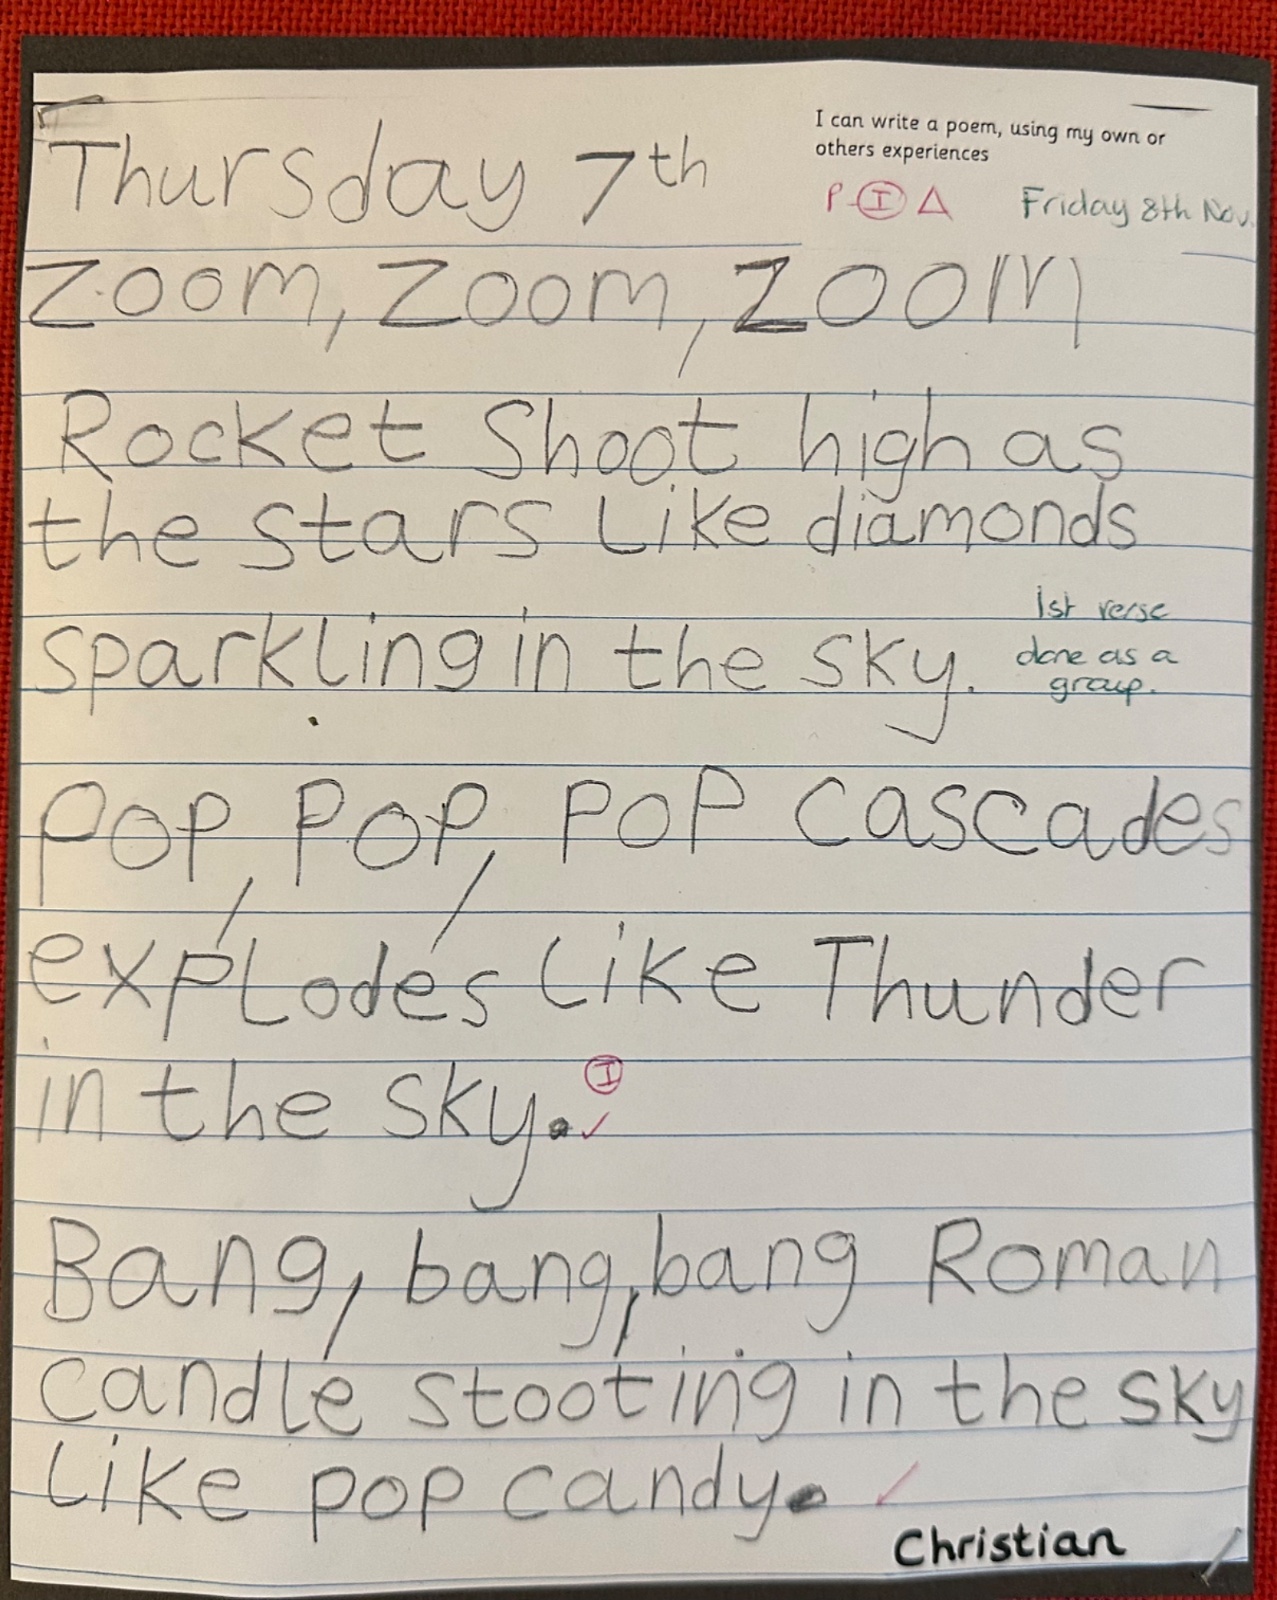 I can write a poem, using my own or
others experiences
P I Δ Friday 8th Nov.
Thursday 7th
Zoom, Zoom, Zoom
Rocket Shoot high as
the stars Like diamonds
sparkling in the sky.
1st verse
done as a
group.
Pop, Pop, PoP cascades
expLodes Like Thunder
in the sky.
I
Bang, bang, bang Roman
candle stooting in the sky
Like pop candy.
Christian